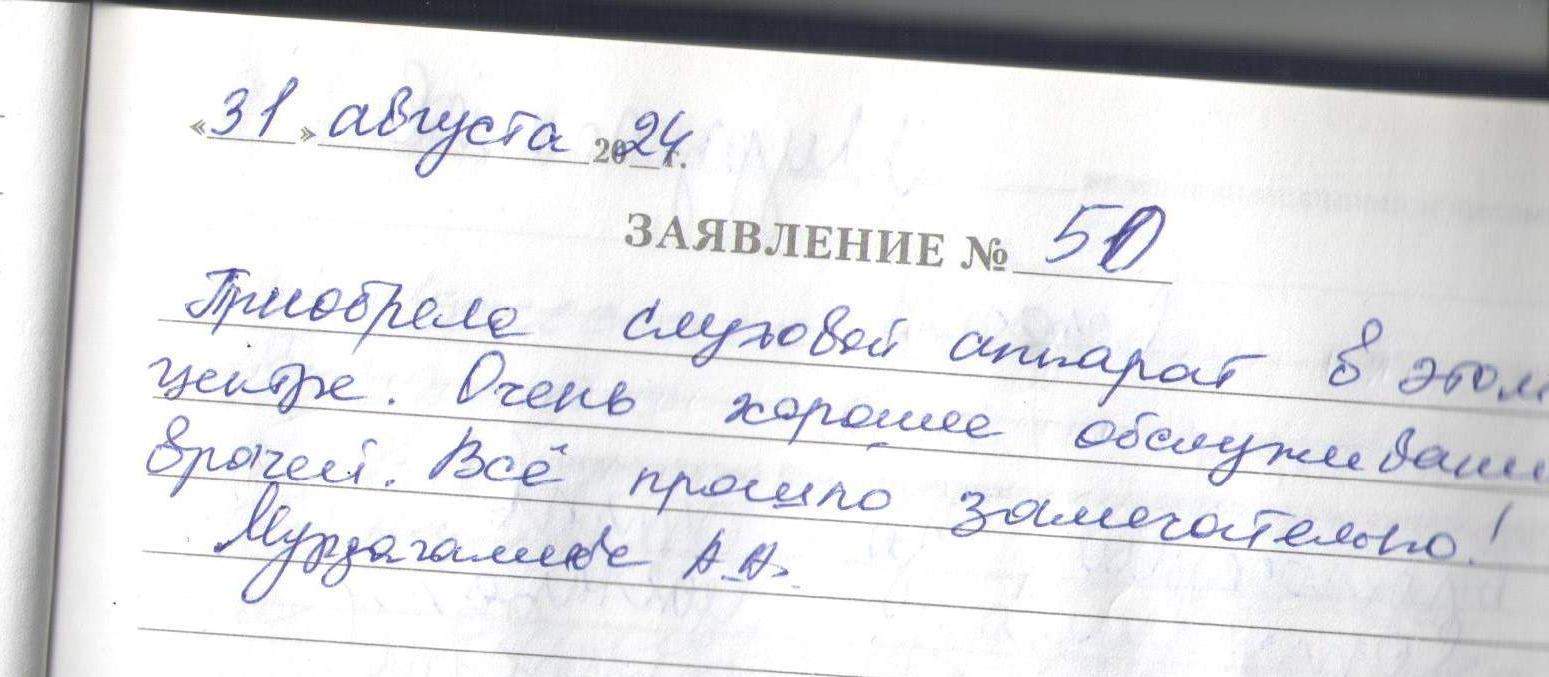 «31» августа 2024 г.
ЗАЯВЛЕНИЕ № 50
Приобрела слуховой аппарат в этом
центре. Очень хорошее обслуживани
врачей. Всё прошло замечательно!
Мурзагалиева А.А.